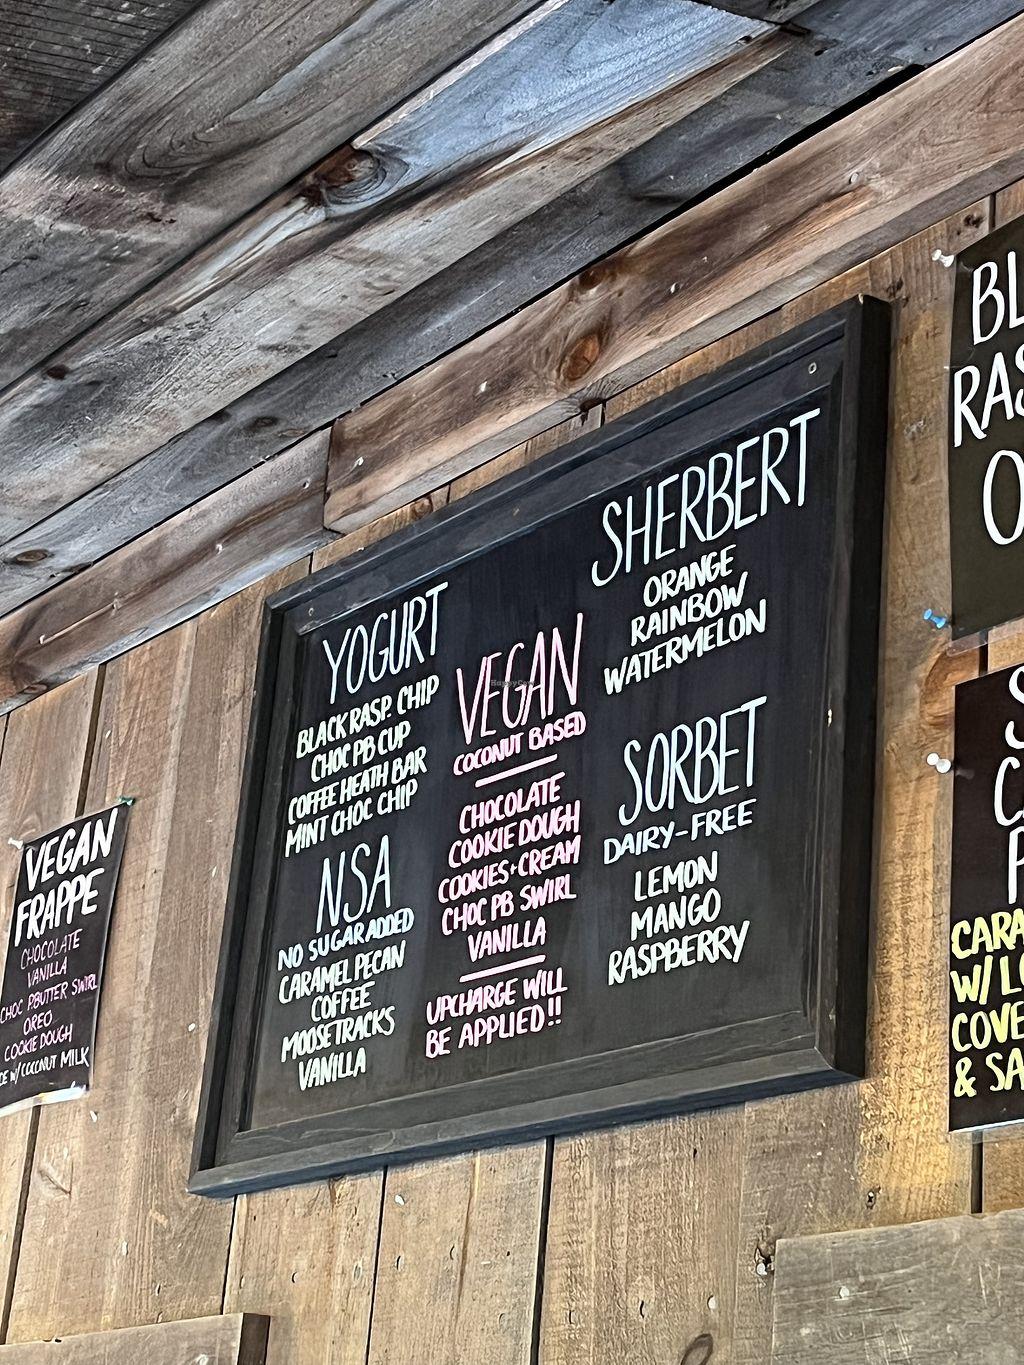 YOGURT
BLACK RASP. CHIP
CHOC PB CUP
COFFEE HEATH BAR
MINT CHOC CHIP
NSA
NO SUGAR ADDED
CARAMEL PECAN
COFFEE
MOOSETRACKS
VANILLA
VEGAN
COCONUT BASED
CHOCOLATE
COOKIE DOUGH
COOKIES+CREAM
CHOC PB SWIRL
VANILLA
UPCHARGE WILL
BE APPLIED!!
SHERBERT
ORANGE
RAINBOW
WATERMELON
SORBET
DAIRY-FREE
LEMON
MANGO
RASPBERRY
VEGAN
FRAPPE
CHOCOLATE
VANILLA
CHOC P.BUTTER SWIRL
OREO
COOKIE DOUGH
W/ COCONUT MILK
BL
RAS
O
S
C
CARA
W/ LO
COVE
& SA
HappyCow